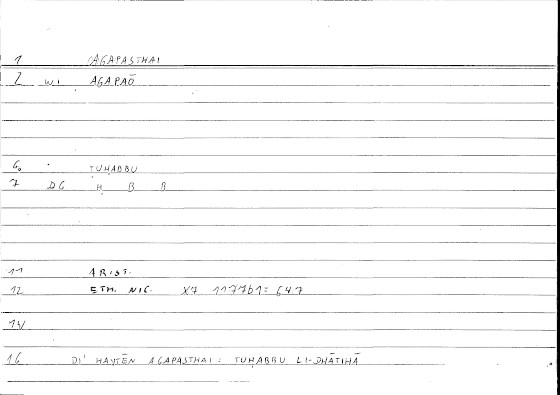 1 AGAPASTHAI
2 WI AGAPAŌ
6. TUḤABBU
7 DG Ḥ B B
11 ARIST.
12 ETH. NIC. X7 1177b1 = 647
14
16 DI' HAYTĒN AGAPASTHAI : TUḤABBU LI-DHĀTIHĀ